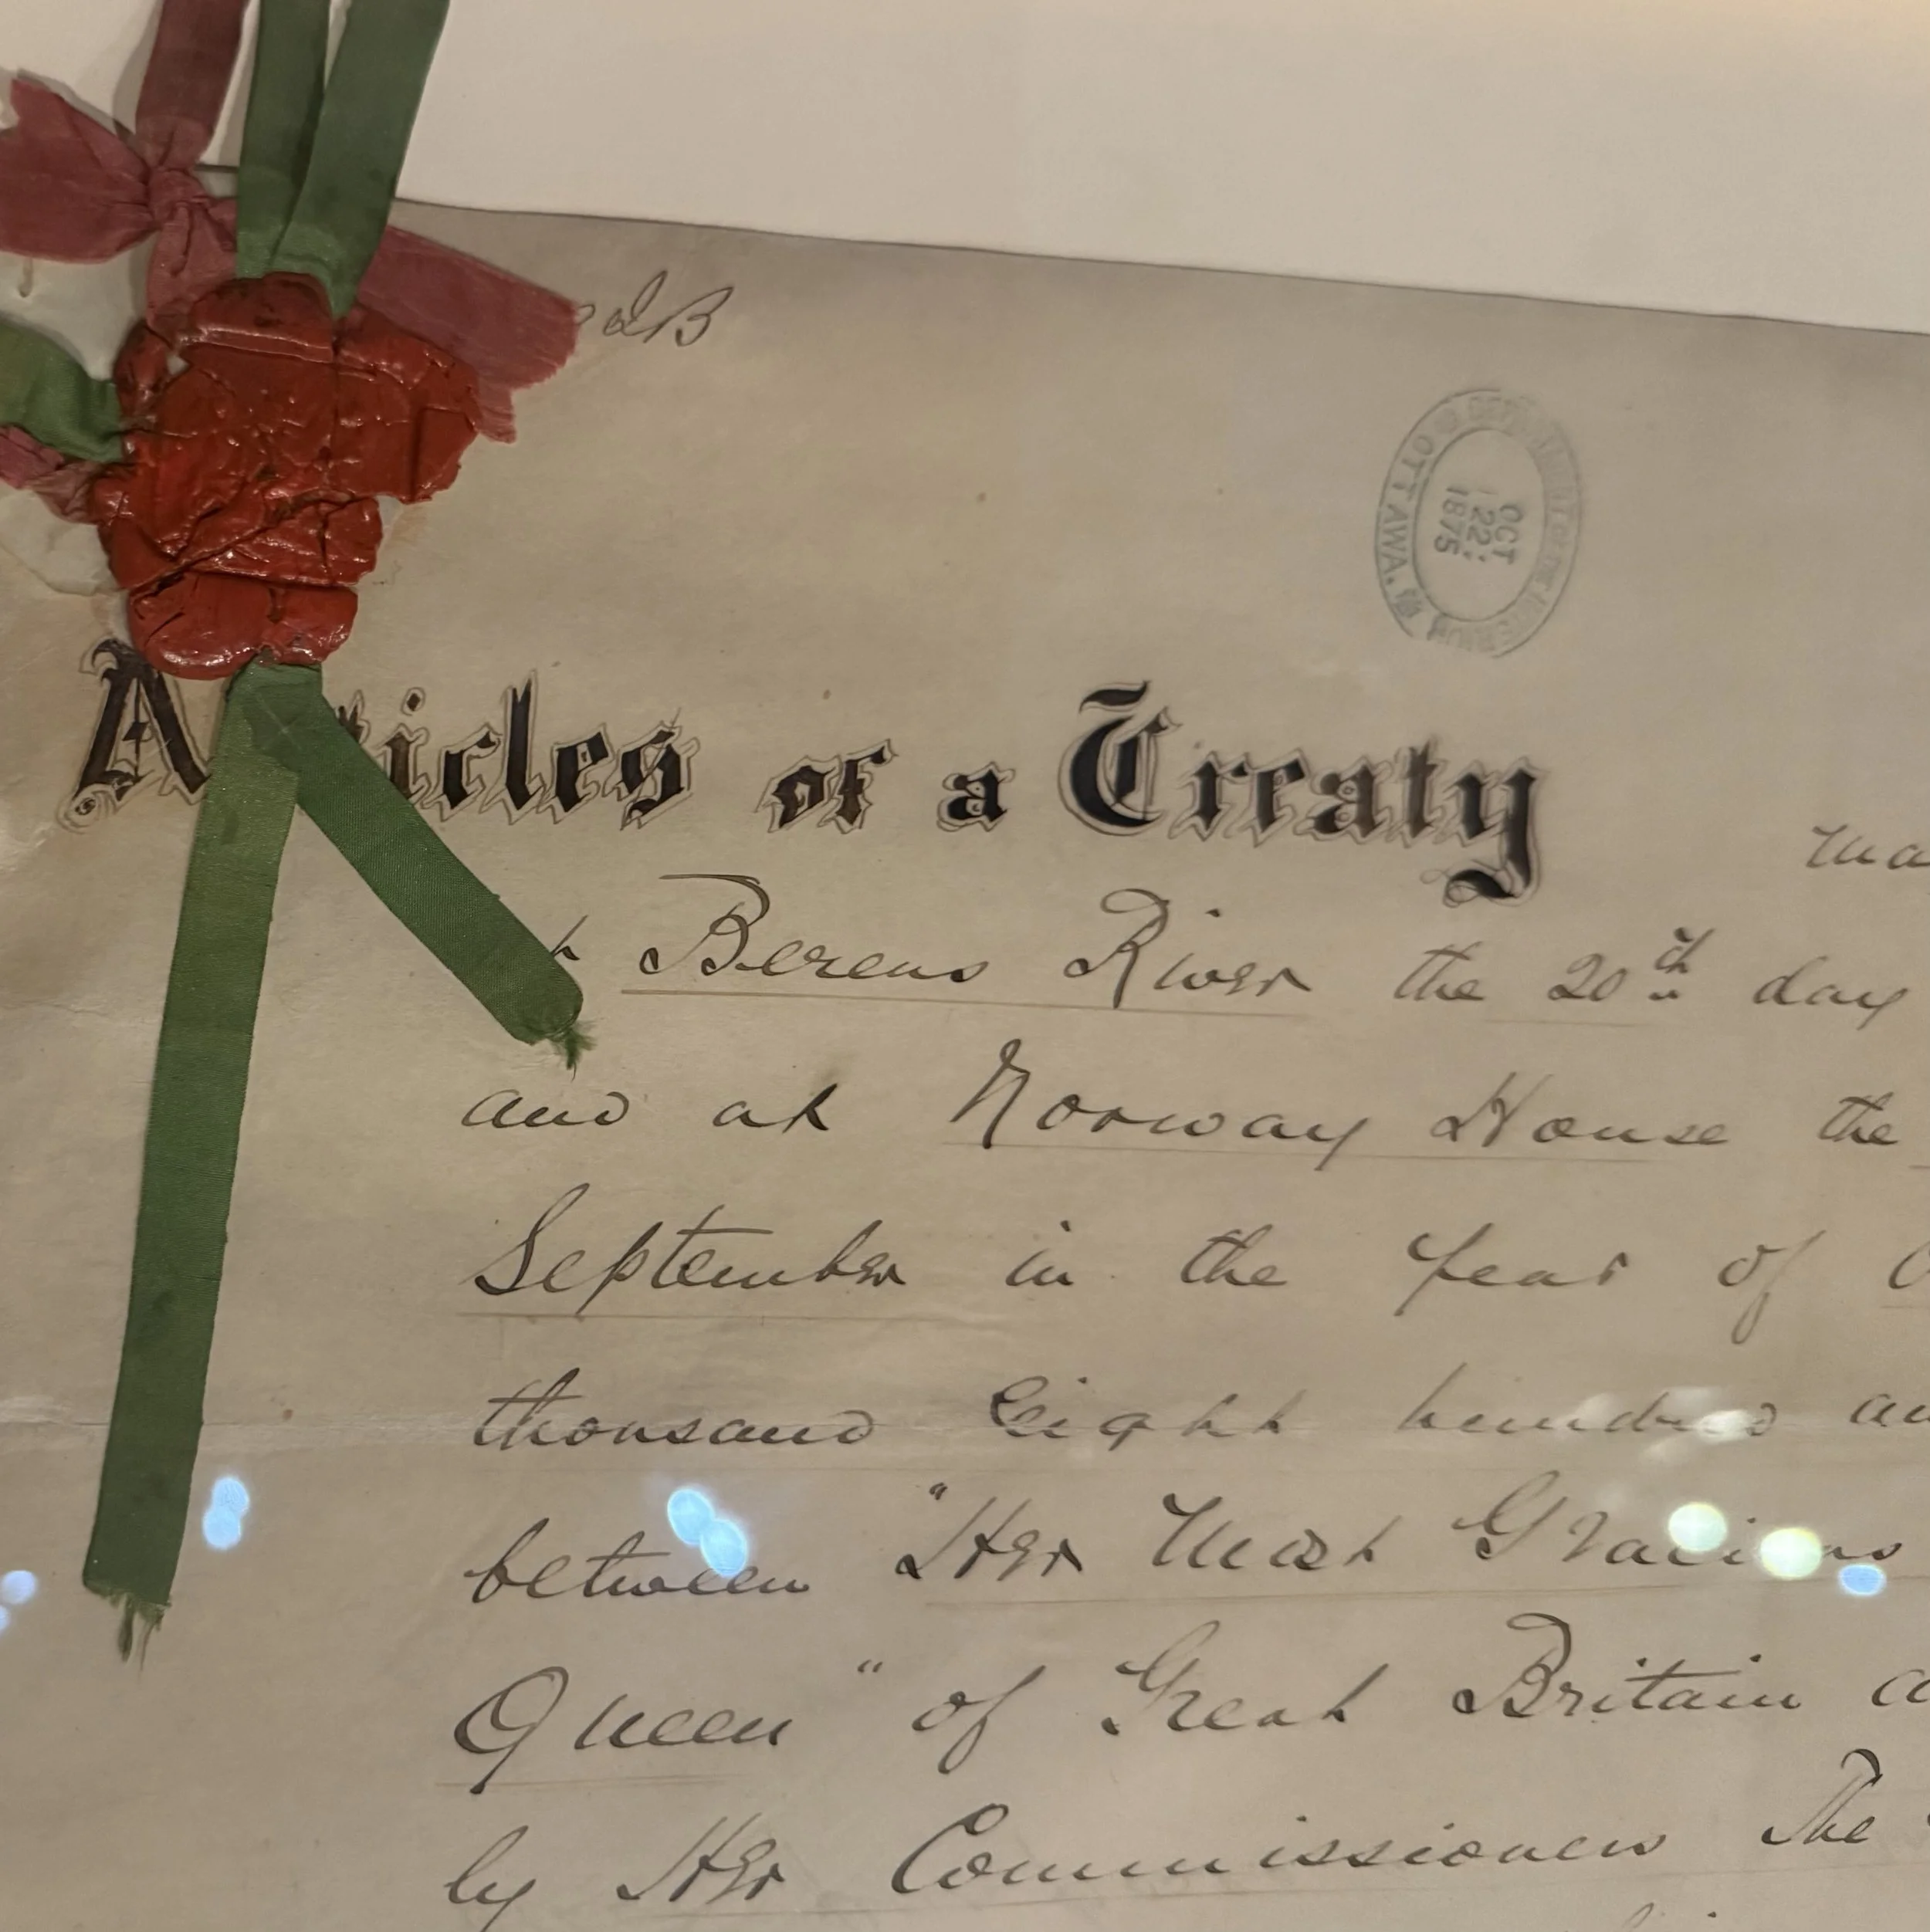 DEPARTMENT OF THE INTERIOR
OTTAWA.
OCT
22
1875
Articles of a Treaty
Berens River the 20th day
and at Norway House the
September in the Year of
thousand Eight hundred
between "Her Most Gracious
Queen" of Great Britain
by Her Commissioners The